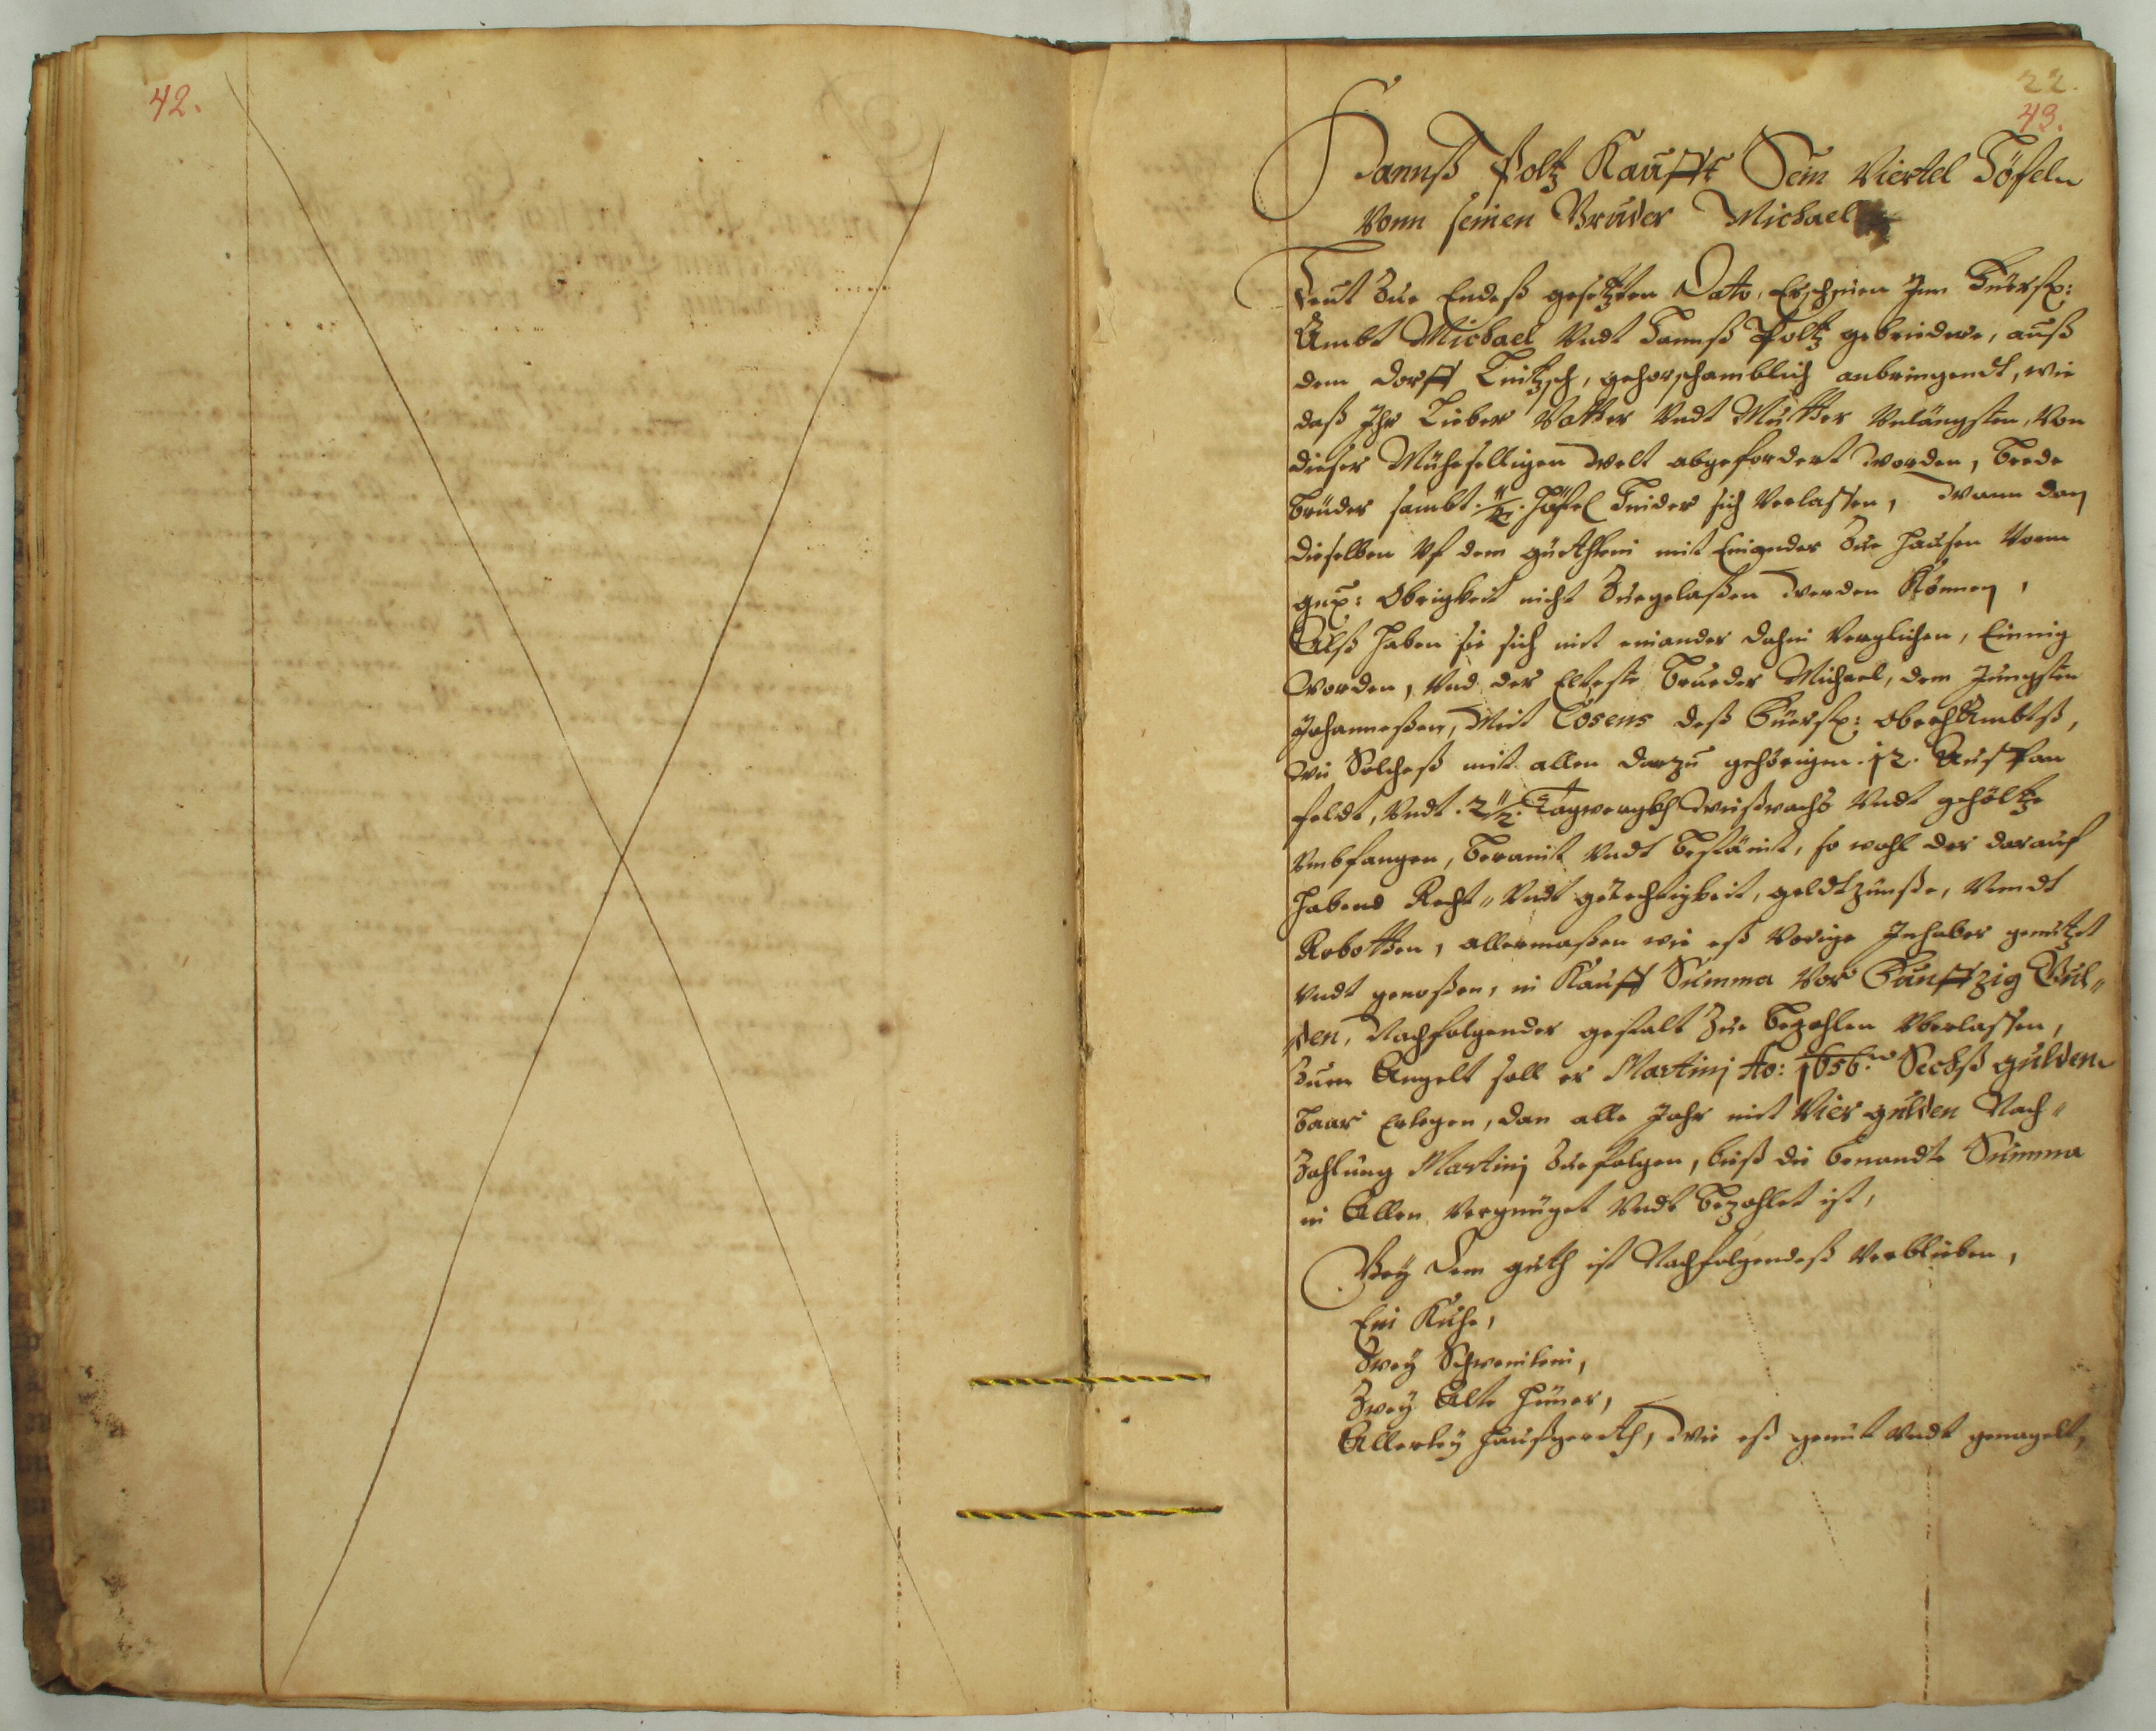 42.
22.
43.
Hannß Poltz Kaufft Sein Viertel Höfeln
Vonn seinen Bruder Michael
Heut Zue Endeß gesetzten Dato, Erschinen Inn Fürstl:
Ambt Michael Vndt Hannß Poltz gebriedere, auß
dem dorff, gehorschamblich anbringendt, wie
daß Ihr Lieber Vatter Vndt Mutter Vnlängsten, Von
dieser Mühseelligen Welt abgefordert Worden, Beede
Brüder sambt Höfel hinder sich Verlassen, Wann dan
dieselben Vf dem güethlein mit Einander Zue hausen Vonn
gnd: Obrigkeit nicht Zuegelaßen Werden Können,
Alß haben sie sich mit einander dahin Verglichen, Einnig
Worden, Vnd der Elteste Brueder Michael, dem Jüngsten
Johanneßen, Mit Cosens deß Fürstl: Ober Ambtß,
Wie Solcheß mit allen darzu gehörigen .12. Ausstan
feldt, Vndt .2 1/2. Tagwergkh Wißwachs Vndt gehöltz
Vmbfangen, Berainit Vndt Bestäinit, so wohl der darauf
habend Recht- Vndt gerechtigkeit, geldtzünße, Vnndt
Robotten, allermaßen wie eß Vorige Inhaber genützet
Vndt genoßen, in Kauff Summa Vor Funffzig Gul-
den, Nachfolgender gestalt Zue Bezahlen Vberlassen,
Zuem Angelt soll er Martinj Ao: 1656. Sechß gulden
baar Erlegen, dan alle Jahr mit Vier gulden Nach-
Zahlung Martinj Zuefolgen, biß die benandte Summa
in Allen Vergnüget Vndt Bezahlet ist,
Bey Dem guth ist Nachfolgendeß Verblieben,
Ein Kuhe,
Zwey Schweinlein,
Zwey Alte Hüner,
Allerley haußgerath, Wie eß genüt Vndt genagelt,